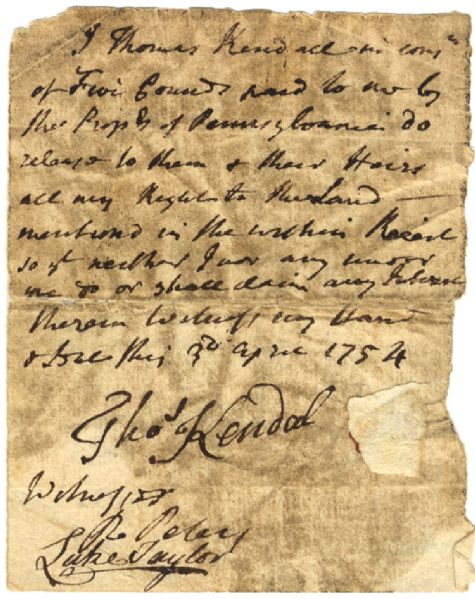 I Thomas Kendall in cons.n
of Five Pounds paid to me by
the Prop.rs of Pennsylvania do
release to them & their Heirs
all my Right to the Land
mentiond in the within
so yt neither I nor any under
me do or shall claim any Interest
therein Witness my Hand
& Seal this 3d April 1754
Thos Kendal
Witnesses
R Peters
Luke Taylor